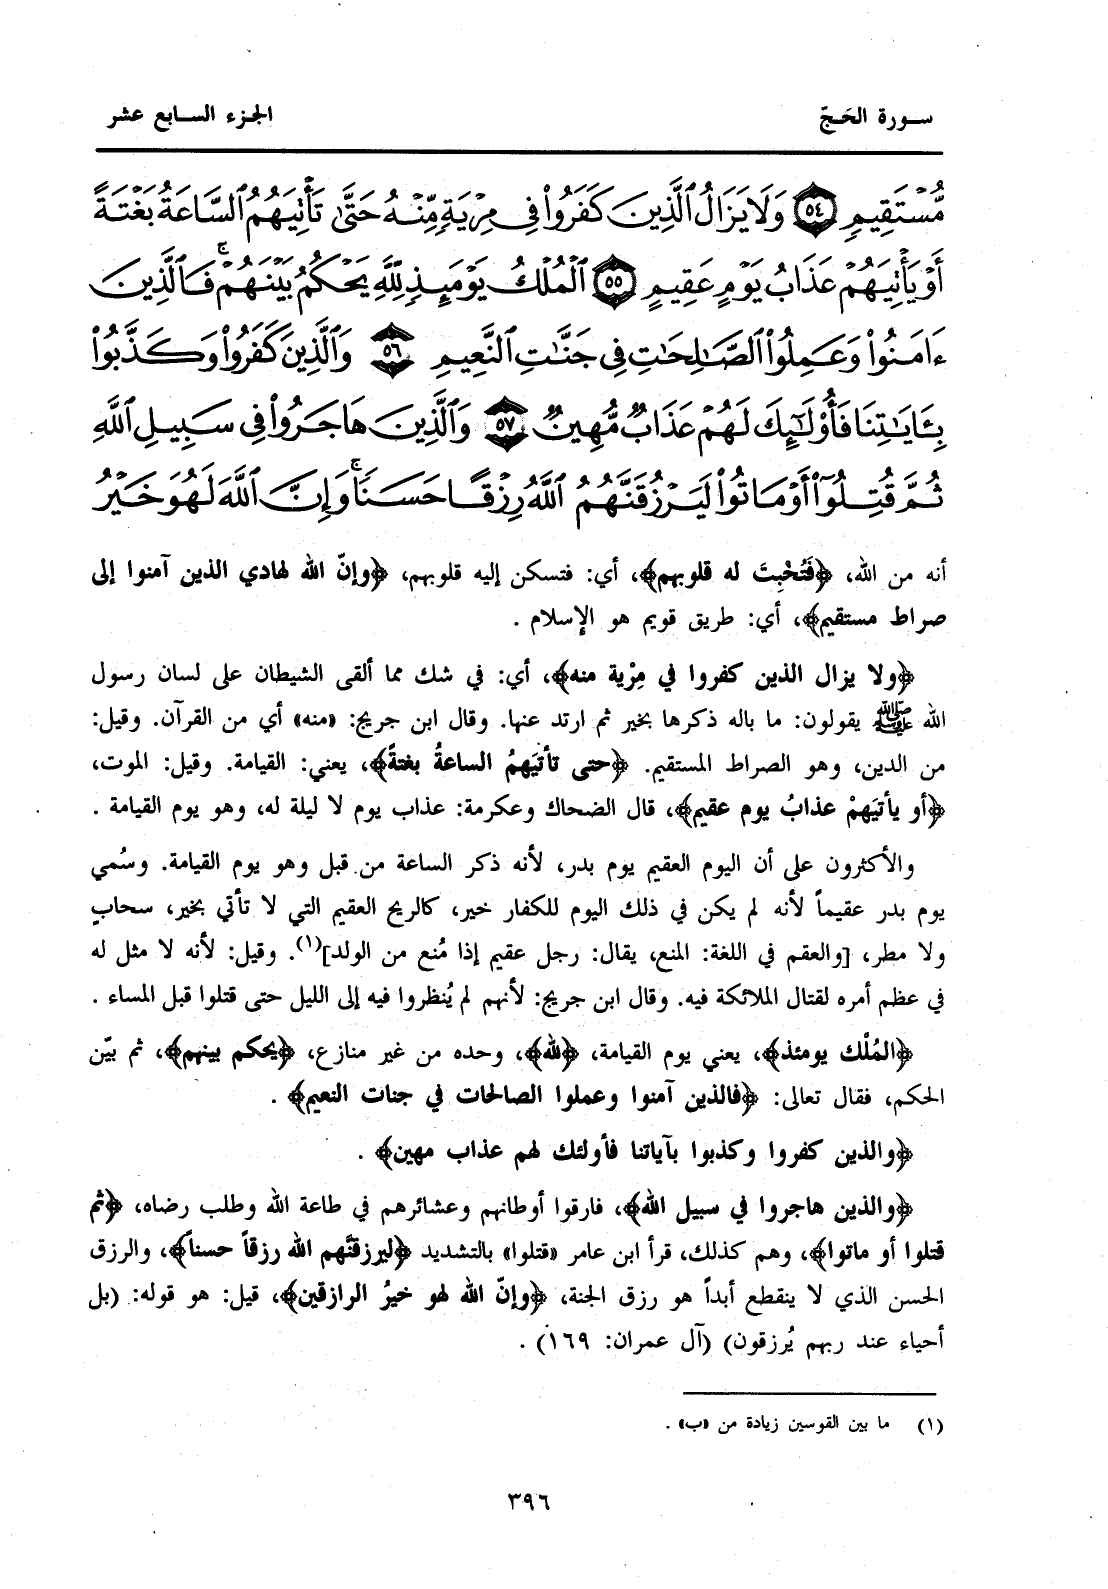 سورة الحَجّ
الجزء السابع عشر
مُّسْتَقِيمٍ ٥٤ وَلَا يَزَالُ الَّذِينَ كَفَرُوا۟ فِى مِرْيَةٍ مِّنْهُ حَتَّىٰ تَأْتِيَهُمُ السَّاعَةُ بَغْتَةً
أَوْ يَأْتِيَهُمْ عَذَابُ يَوْمٍ عَقِيمٍ ٥٥ الْمُلْكُ يَوْمَئِذٍ لِّلَّهِ يَحْكُمُ بَيْنَهُمْ ۚ فَالَّذِينَ
ءَامَنُوا۟ وَعَمِلُوا۟ الصَّـٰلِحَـٰتِ فِى جَنَّـٰتِ النَّعِيمِ ٥٦ وَالَّذِينَ كَفَرُوا۟ وَكَذَّبُوا۟
بِـَٔايَـٰتِنَا فَأُو۟لَـٰٓئِكَ لَهُمْ عَذَابٌ مُّهِينٌ ٥٧ وَالَّذِينَ هَاجَرُوا۟ فِى سَبِيلِ اللَّهِ
ثُمَّ قُتِلُوٓا۟ أَوْ مَاتُوا۟ لَيَرْزُقَنَّهُمُ اللَّهُ رِزْقًا حَسَنًا ۚ وَإِنَّ اللَّهَ لَهُوَ خَيْرُ
أنه من الله، ﴿فَتُخْبِتَ له قلوبهم﴾، أي: فتسكن إليه قلوبهم، ﴿وإنّ الله لهادي الذين آمنوا إلى
صراط مستقيم﴾، أي: طريق قويم هو الإسلام .
﴿ولا يزال الذين كفروا في مِرْية منه﴾، أي: في شك مما ألقى الشيطان على لسان رسول
الله ﷺ يقولون: ما باله ذكرها بخير ثم ارتد عنها. وقال ابن جريج: «منه» أي من القرآن. وقيل:
من الدين، وهو الصراط المستقيم. ﴿حتى تأتيَهمُ الساعةُ بغتةً﴾، يعني: القيامة. وقيل: الموت،
﴿أو يأتيَهمْ عذابُ يوم عقيم﴾، قال الضحاك وعكرمة: عذاب يوم لا ليلة له، وهو يوم القيامة .
والأكثرون على أن اليوم العقيم يوم بدر، لأنه ذكر الساعة من قبل وهو يوم القيامة. وسُمي
يوم بدر عقيماً لأنه لم يكن في ذلك اليوم للكفار خير، كالريح العقيم التي لا تأتي بخير، سحابٍ
ولا مطر، [والعقم في اللغة: المنع، يقال: رجل عقيم إذا مُنع من الولد](١). وقيل: لأنه لا مثل له
في عظم أمره لقتال الملائكة فيه. وقال ابن جريج: لأنهم لم يُنظروا فيه إلى الليل حتى قتلوا قبل المساء .
﴿المُلْك يومئذ﴾، يعني يوم القيامة، ﴿لله﴾، وحده من غير منازع، ﴿يحكم بينهم﴾، ثم بيّن
الحكم، فقال تعالى: ﴿فالذين آمنوا وعملوا الصالحات في جنات النعيم﴾ .
﴿والذين كفروا وكذبوا بآياتنا فأولئك لهم عذاب مهين﴾ .
﴿والذين هاجروا في سبيل الله﴾، فارقوا أوطانهم وعشائرهم في طاعة الله وطلب رضاه، ﴿ثم
قتلوا أو ماتوا﴾، وهم كذلك، قرأ ابن عامر «قتلوا» بالتشديد ﴿ليرزقنَّهم الله رزقاً حسناً﴾، والرزق
الحسن الذي لا ينقطع أبداً هو رزق الجنة، ﴿وإنّ الله لهو خيرُ الرازقين﴾، قيل: هو قوله: (بل
أحياء عند ربهم يُرزقون) (آل عمران: ١٦٩) .
(١) ما بين القوسين زيادة من «ب» .
٣٩٦